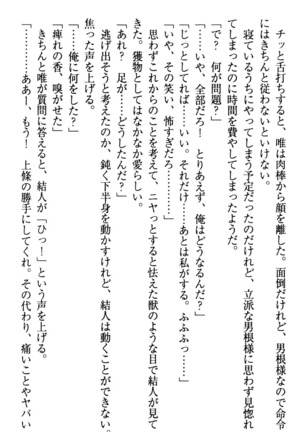 チッと舌打ちすると、唯は肉棒から顔を離した。面倒だけれど、男根様なので命令
にはきちんと従わないといけない。
寝ているうちにやってしまう予定だったのだけれど、立派な男根様に思わず見惚れ
てしまったのに時間を費やしてしまったようだ。
「で？　何が問題？」
「……いや、全部だろ！　とりあえず、俺はどうなるんだ？」
「じっとしてれば……いい。それだけ……あとは私がする。ふふふっ……」
「いや、その笑い、怖すぎだろ…………」
思わずこれからのことを考えて、ニヤっとすると怯えた獣のような目で結人が見て
きた。獲物としてはなかなか愛らしい。
「あれ？　足が……どうしたんだ？」
逃げ出そうと考えたのか、鈍く下半身を動かすけれど、結人は動くことができない。
焦った声を上げる。
「……俺に何をした？」
「痺れの香、嗅がせた」
きちんと唯が質問に答えると、結人が「ひっ！」という声を上げる。
「…………ああー、もう！　上條の勝手にしてくれ。その代わり、痛いことやヤバい